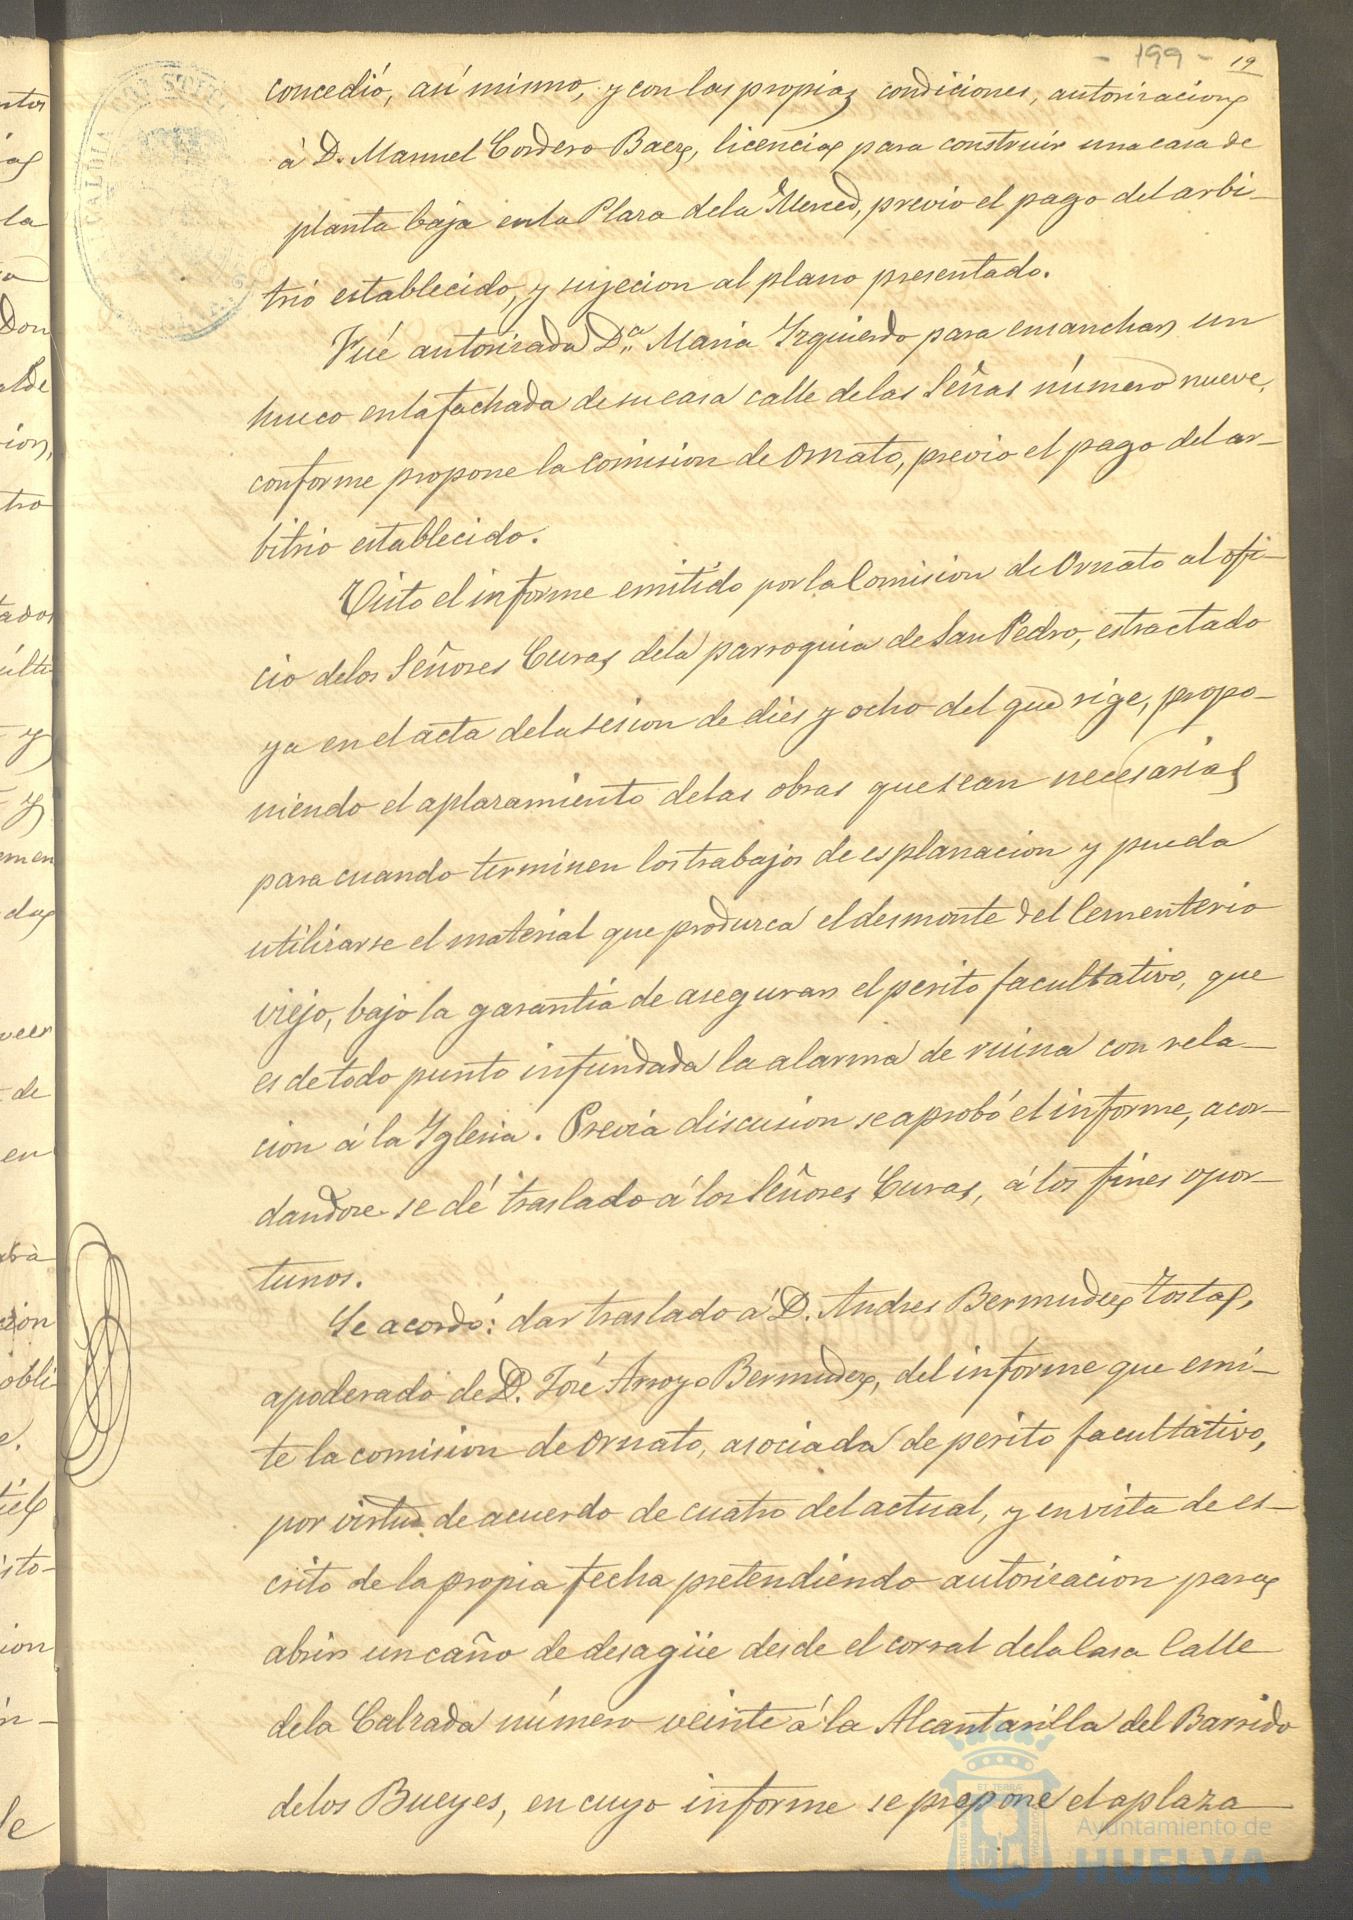 - 199 - 19
concedió, así mismo, y con las propias condiciones, autorizacion
á D. Manuel Cordero Baez, licencia para construir una casa de
planta baja en la Plaza de la Merced, previo el pago del arbi-
trio establecido, y sujecion al plano presentado.
Fué autorizada D.ª Maria Yzquierdo para ensanchar un
hueco en la fachada de su casa calle de las Señas número nueve,
conforme propone la comision de Ornato, previo el pago del ar-
bitrio establecido.
Visto el informe emitido por la Comision de Ornato al ofi-
cio de los Señores Curas de la parroquia de San Pedro, estractado
ya en el acta de la sesion de dies y ocho del que rige, propo-
niendo el aplazamiento de las obras que sean necesarias
para cuando terminen los trabajos de esplanacion y pueda
utilizarse el material que produzca el desmonte del Cementerio
viejo, bajo la garantia de asegurar el perito facultativo, que
es de todo punto infundada la alarma de ruina con rela-
cion á la Yglesia. Previa discusion se aprobó el informe, acor-
dandose se dé traslado á los Señores Curas, á los fines opor-
tunos.
Se acordó: dar traslado á D. Andres Bermudez Tosta,
apoderado de D. José Arroyo Bermudez, del informe que emi-
te la comision de Ornato, asociada de perito facultativo,
por virtud de acuerdo de cuatro del actual, y en vista de es-
crito de la propia fecha pretendiendo autorizacion para
abrir un caño de desagüe desde el corral de la Casa Calle
de la Calzada número veinte á la Alcantarilla del Barrido
de los Bueyes, en cuyo informe se propone el aplaza
Ayuntamiento de
HUELVA